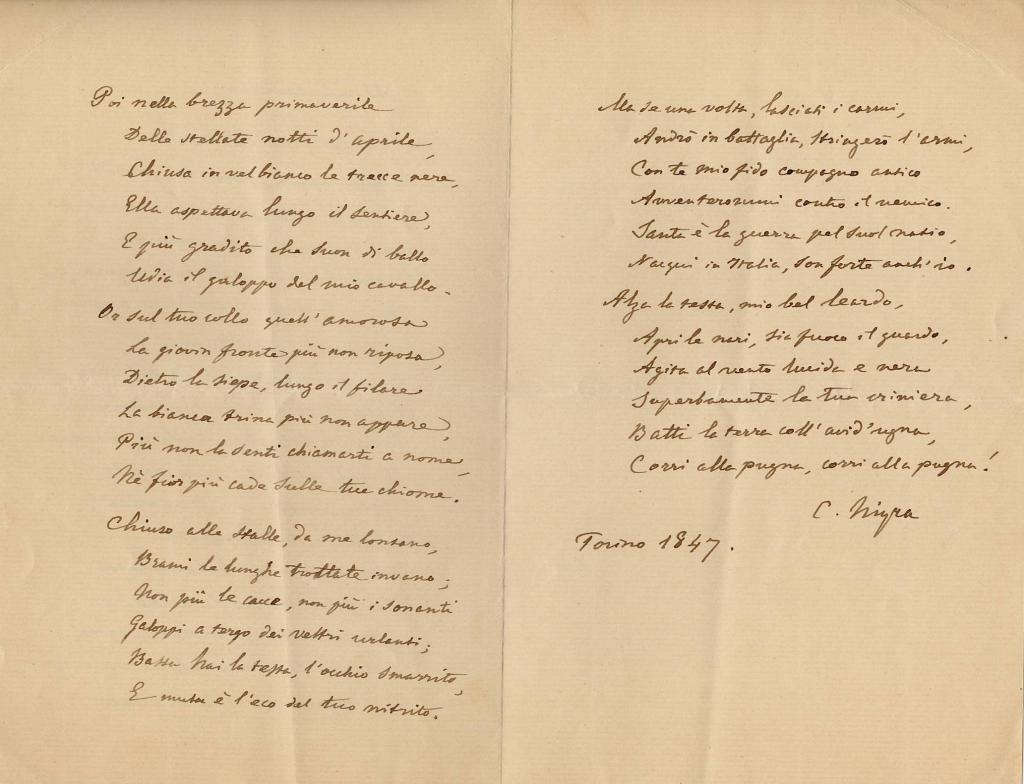 Poi nella brezza primaverile
Delle stellate notti d'aprile,
Chiusa in vel bianco le trecce nere,
Ella aspettava lungo il sentiere,
E più gradito che suon di ballo
Udia il galoppo del mio cavallo.
Or sul tuo collo quell'amorosa
La giovin fronte più non riposa,
Dietro la siepe, lungo il filare
La bianca trina più non appare,
Più non la senti chiamarti a nome,
Nè fior più cade sulle tue chiome.
Chiuso alle stalle, da me lontano,
Brami le lunghe trottate invano;
Non più le cacce, non più i sonanti
Galoppi a tergo dei veltri urlanti;
Bassa hai la testa, l'occhio smarrito,
E muta è l'eco del tuo nitrito.
Ma se una volta, lasciati i carmi,
Andrò in battaglia, stringerò l'armi,
Con te mio fido compagno antico
Avventerommi contro il nemico.
Santa è la guerra pel suol natio,
Nacqui in Italia, son forte anch'io.
Alza la testa, mio bel leardo,
Apri le nari, sia fuoco il guardo,
Agita al vento lucida e nera
Superbamente la tua criniera,
Batti la terra coll'avid'ugna,
Corri alla pugna, corri alla pugna!
C. Nigra
Torino 1847.